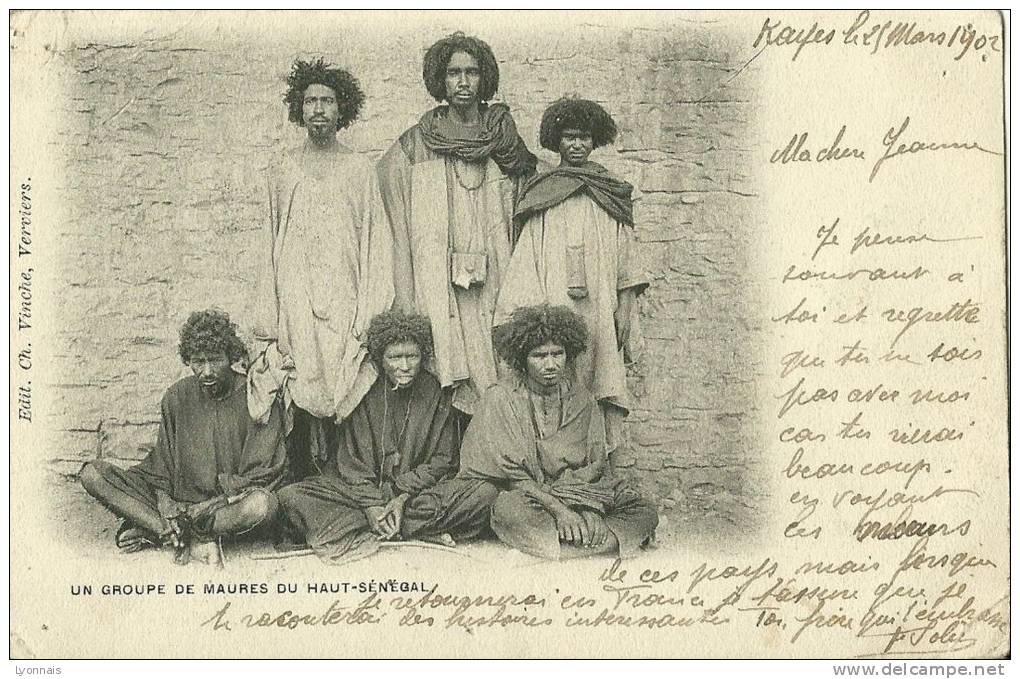 Kayes le 25 Mars 1902
Ma chere Jeanne
Je pense
souvant à
toi et regrette
que tu ne sois
pas avec moi
car tu rierai
beaucoup.
en voyant
ces
de ces pays mais lorsque
je retournerai en France je t'assure que je
te raconterai des histoires interessantes Ton frère qui t'embrasse
Edit. Ch. Vinche, Verviers.
UN GROUPE DE MAURES DU HAUT-SÉNÉGAL
Lyonnais
http://www.delcampe.net